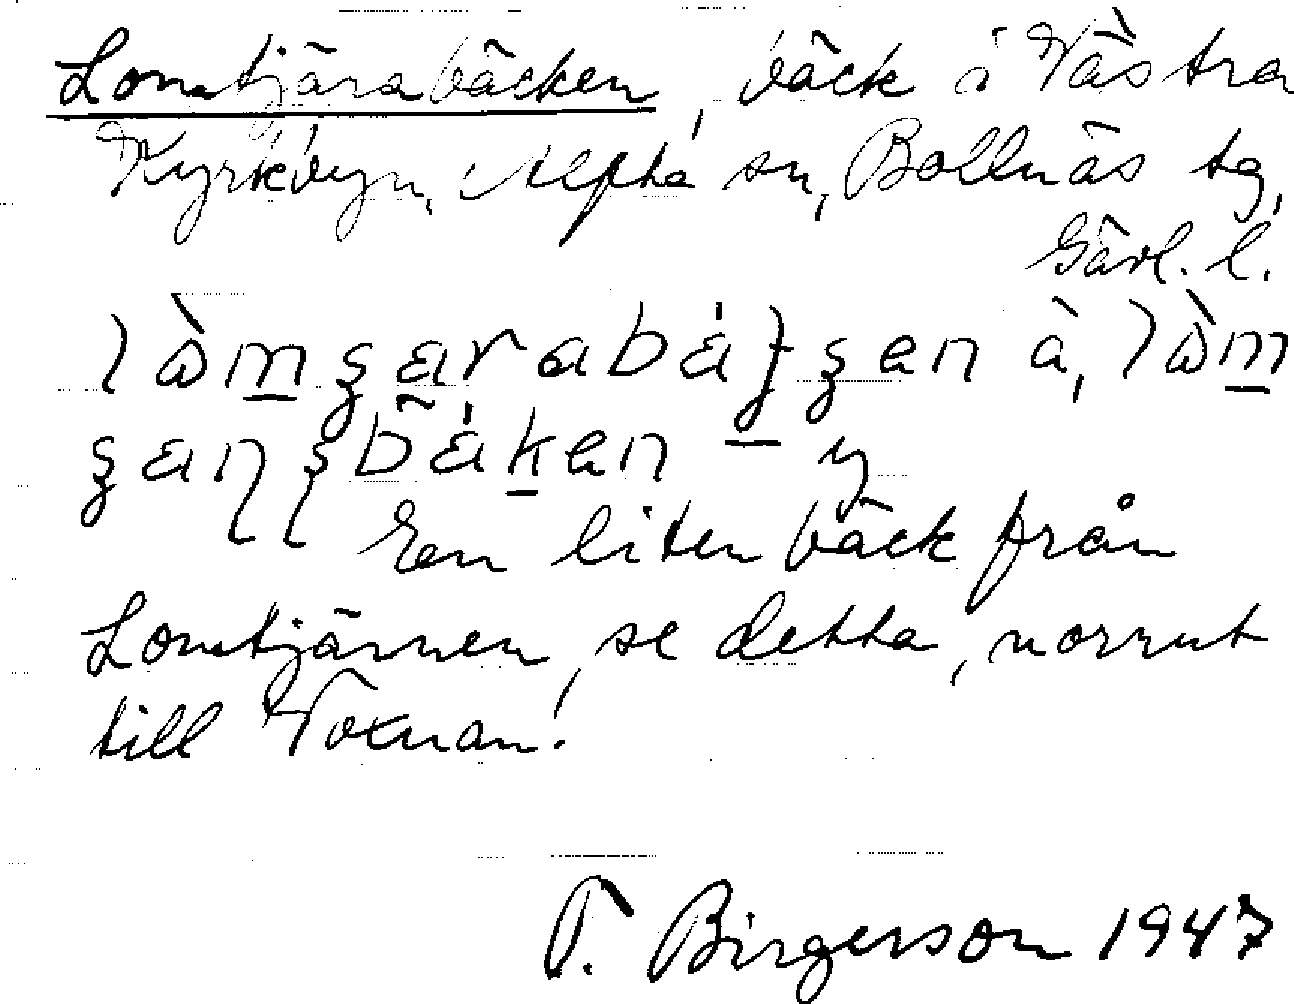 Lomtjärabäcken, bäck i Västra
Kyrkbyn, Alfta sn, Bollnäs tg,
Gävl. l.
En liten bäck från
Lomtjärnen, se detta, norrut
till Voxnan.
T. Birgerson 1947